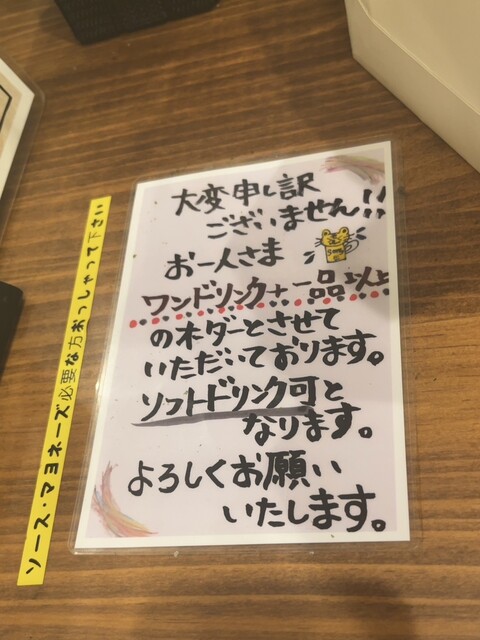 大変申し訳
ございません!!
お一人さま
ワンドリンク+一品以上
のオーダーとさせて
いただいております。
ソフトドリンク可と
なります。
よろしくお願い
いたします。
ソース・マヨネーズ必要な方おっしゃって下さい